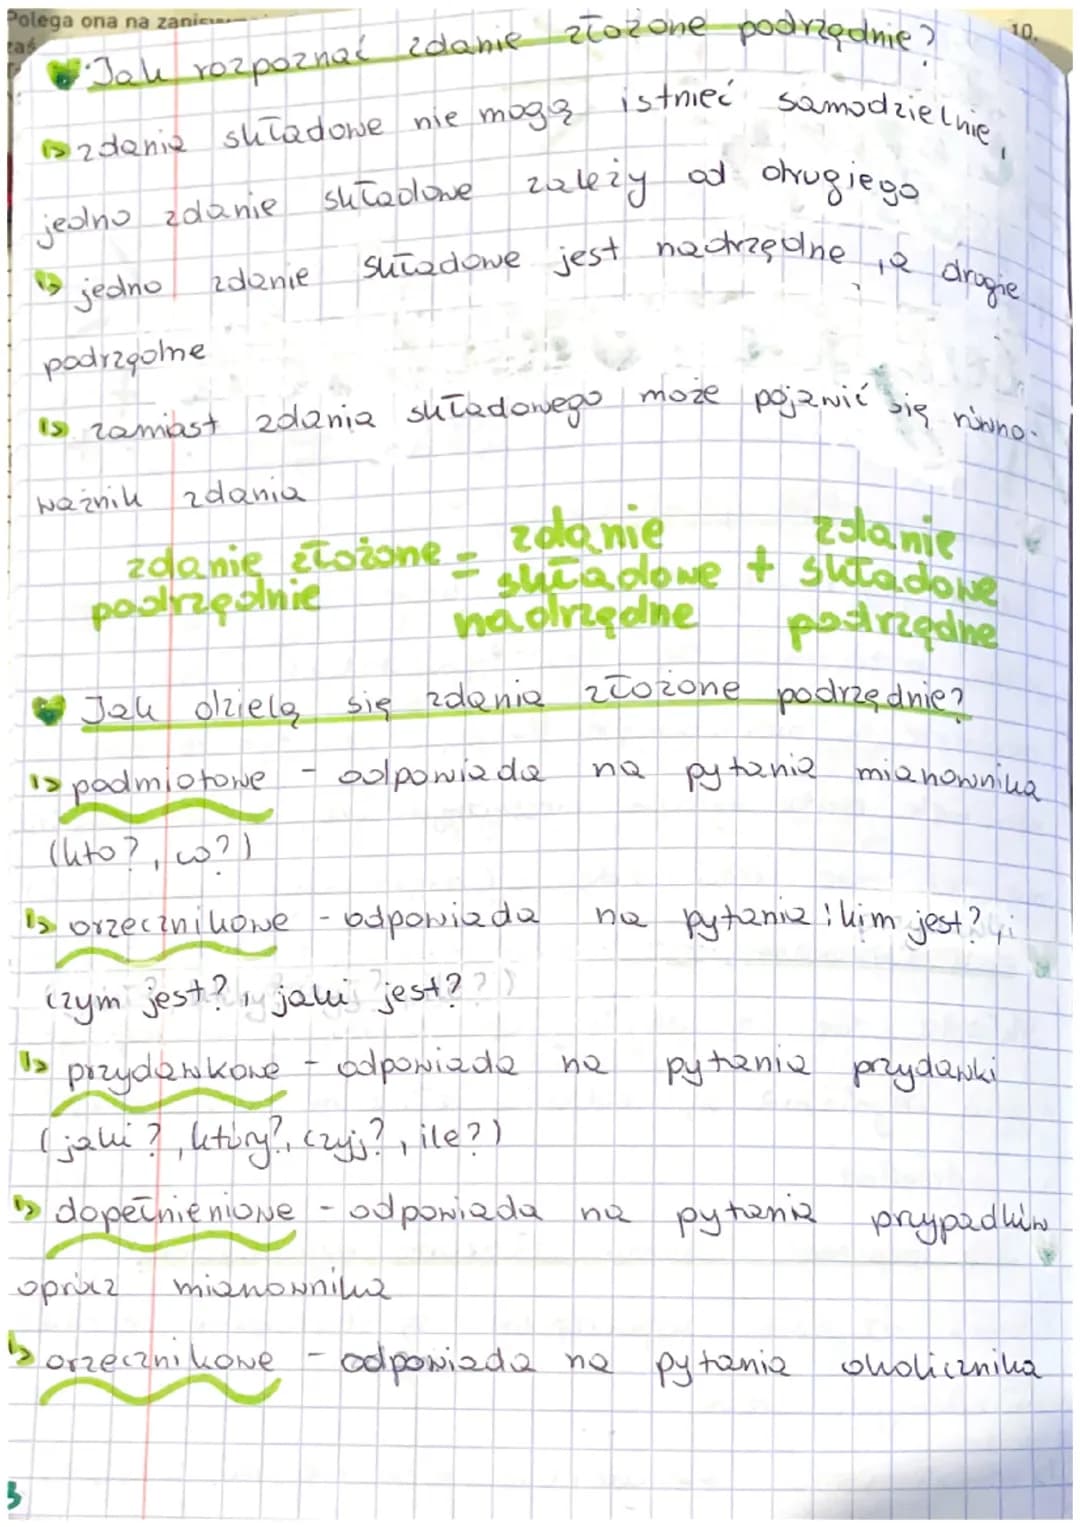 Polega ona na
10.
Jak rozpoznać zdanie złożone podrzędnie?
zdania składowe nie mogą istnieć samodzielnie,
jedno zdanie składowe zależy od drugiego
jedno zdanie składowe jest nadrzędne, a drogie
podrzędne
zamiast zdania składowego może pojawić się równo-
ważnik zdania
zdanie złożone podrzędnie = zdanie składowe nadrzędne + zdanie składowe podrzędne
Jak dzielą się zdania złożone podrzędnie?
podmiotowe - odpowiada na pytania mianownika
(kto?, co?)
orzecznikowe - odpowiada na pytania: kim jest?,
czym jest?, jaki jest?
przydawkowe - odpowiada na pytania przydawki
(jaki?, który?, czyj?, ile?)
dopełnieniowe - odpowiada na pytania przypadków
oprócz mianownika
orzecznikowe - odpowiada na pytania okolicznika